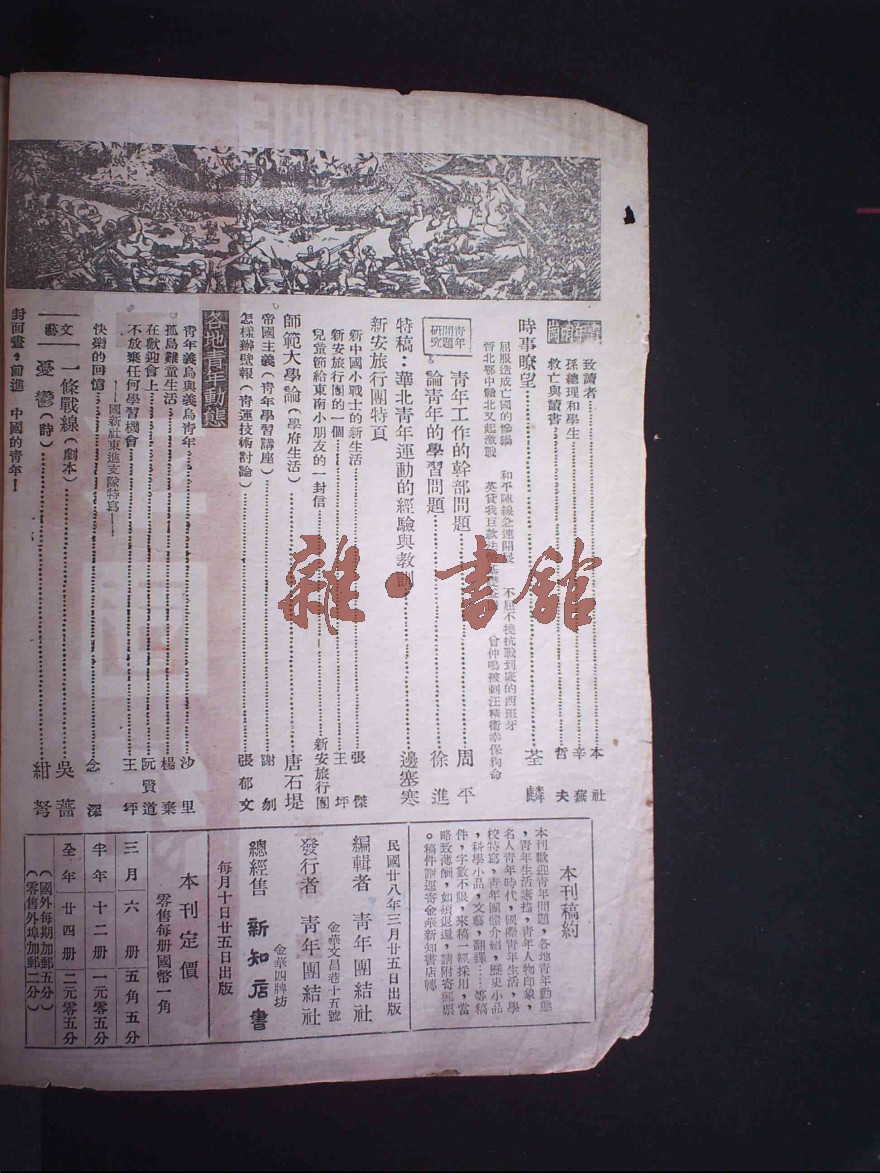 致讀者……本社
孫總理和學生……辛蕪
救亡與讀書……哲夫
時事瞭望……荃麟
屈服造成亡國的慘禍 和平陳線急速開展 不屈不撓抗戰到底的西班牙
晉北鄂中贛北又起激戰 英貸我巨款 曾仲鳴被刺汪精衛幸保狗命
青年問題研究
青年工作的幹部問題……周平
論青年的學習問題……徐進
特稿：華北青年運動的經驗與教訓……邊塞寒
新安旅行團特頁
新中國小戰士的新生活……張傑
新安旅行團的一個……王坪
兒童節給東南小朋友的一封信……新安旅行團
師範大學論（學府生活）……唐石堤
帝國主義（青年學習講座）……謝刎
怎樣辦壁報（青運技術討論）……張郁文
各地青年動態
青年義烏與義烏青年……沙里
孤島難童生活……楊棄
在歡迎會上……阮賢道
不放棄任何學習機會……王坪
——國新社東進支隊特寫——
快樂的回憶……念深
文藝
一條戰線（劇本）……吳薔
憂鬱（詩）……紺弩
封面畫，前進 中國的青年！
本刊稿約
本刊歡迎青年問題，各地青年動態
，青年生活素描，青年人物印象，
名人青年時代，國際青年生活，學
校特寫，青年團體介紹，歷史小品
，科學小品，文藝，翻譯……等稿
件，字數不限，來稿一經採用，當
略致薄酬，如須退還，請附寄郵票
。稿件請逕寄金華新知書店轉
民國廿八年三月廿五日出版
編輯者 青年團結社
金華文昌巷十五號
發行者 青年團結社
金華四牌坊
總經售 新知書店
每月十日廿五日出版
本刊定價
零售每册國幣一角
三月 六册 五角五分
半年 十二册 一元零五分
全年 廿四册 二元零五分
（國外每期加郵五分）
（零售外埠加郵二分）
雜·書館